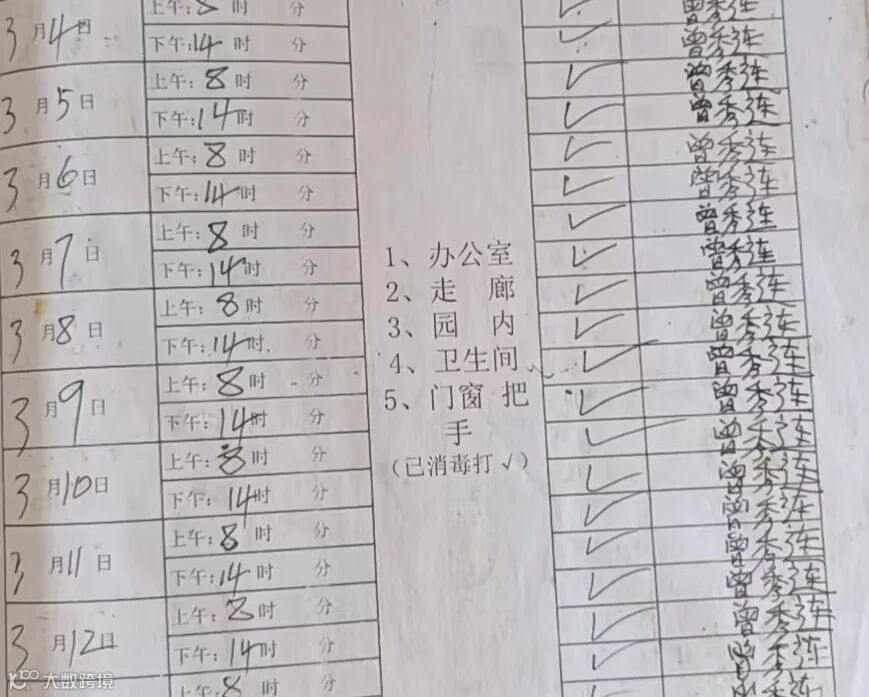 3月4日 上午:8时 分 ✓ 曾秀连
下午:14时 分 ✓ 曾秀连
3月5日 上午:8时 分 ✓ 曾秀连
下午:14时 分 ✓ 曾秀连
3月6日 上午:8时 分 ✓ 曾秀连
下午:14时 分 ✓ 曾秀连
3月7日 上午:8时 分 ✓ 曾秀连
下午:14时 分 ✓ 曾秀连
3月8日 上午:8时 分 ✓ 曾秀连
下午:14时 分 ✓ 曾秀连
3月9日 上午:8时 分 ✓ 曾秀连
下午:14时 分 ✓ 曾秀连
3月10日 上午:8时 分 ✓ 曾秀连
下午:14时 分 ✓ 曾秀连
3月11日 上午:8时 分 ✓ 曾秀连
下午:14时 分 ✓ 曾秀连
3月12日 上午:8时 分 ✓ 曾秀连
下午:14时 分 ✓ 曾秀连
上午:8时 分
1、办公室
2、走 廊
3、园 内
4、卫生间
5、门窗把
手
(已消毒打√)
大数跨境